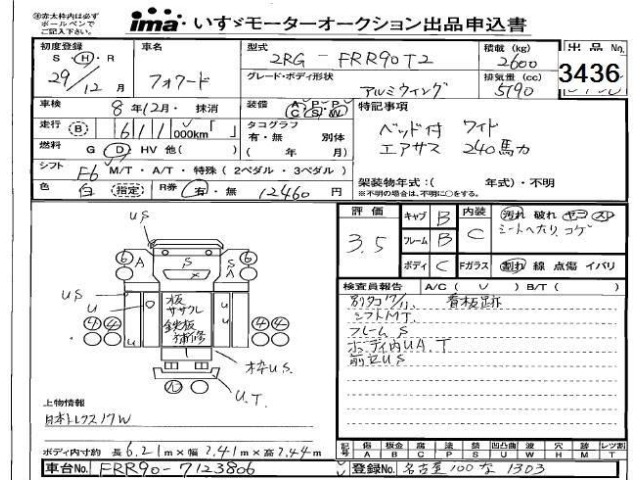 ㊟赤太枠内は必ず
ボールペンで
ご記入下さい。
ima いすゞモーターオークション出品申込書
初度登録 車名 型式 積載 (kg) 出品No.
S・H・R 29/12月 フォワード 2RG-FRR90T2 2600 3436
グレード・ボディ形状 アルミウイング 排気量 (cc) 5190
車検 8年12月・抹消 装備 A・P・P C S W 特記事項
走行 B 611000km「 」 タコグラフ 有・無 別体 ベッド付 ワイド
燃料 G D HV 他( ) ( 年 月) エアサス 240馬力
シフト F6 M/T・A/T・特殊(2ペダル・3ペダル) 架装物年式:( 年式)・不明
※不明の場合は、不明に○をする。
色 白 指定 R券 有・無 12460円
評価 3.5 キャブ B 内装 C 汚れ 破れ ヤコ スレ
フレーム B シートへたり、コゲ
ボディ C Fガラス 割れ 線 点傷 イバリ
検査員報告 A/C( ) B/T( )
別タコ 看板足跡
シフトMT.
フレームS
ボディ内UA.T
前セUS
US
6 A S S A 6
US
U
板
ササクレ
鉄板
補修
U U
4 4 4 4
枠US.
U.T.
上物情報
日本トレクス17W
ボディ内寸約 長6.21m×幅2.41m×高2.44m
記号 傷 板金 腐 塗 類 凹凸曲 波 穴 跡 レツ割
A B C P S U W H M T
車台No. FRR90-7123806 登録No. 名古屋 100 な 1303